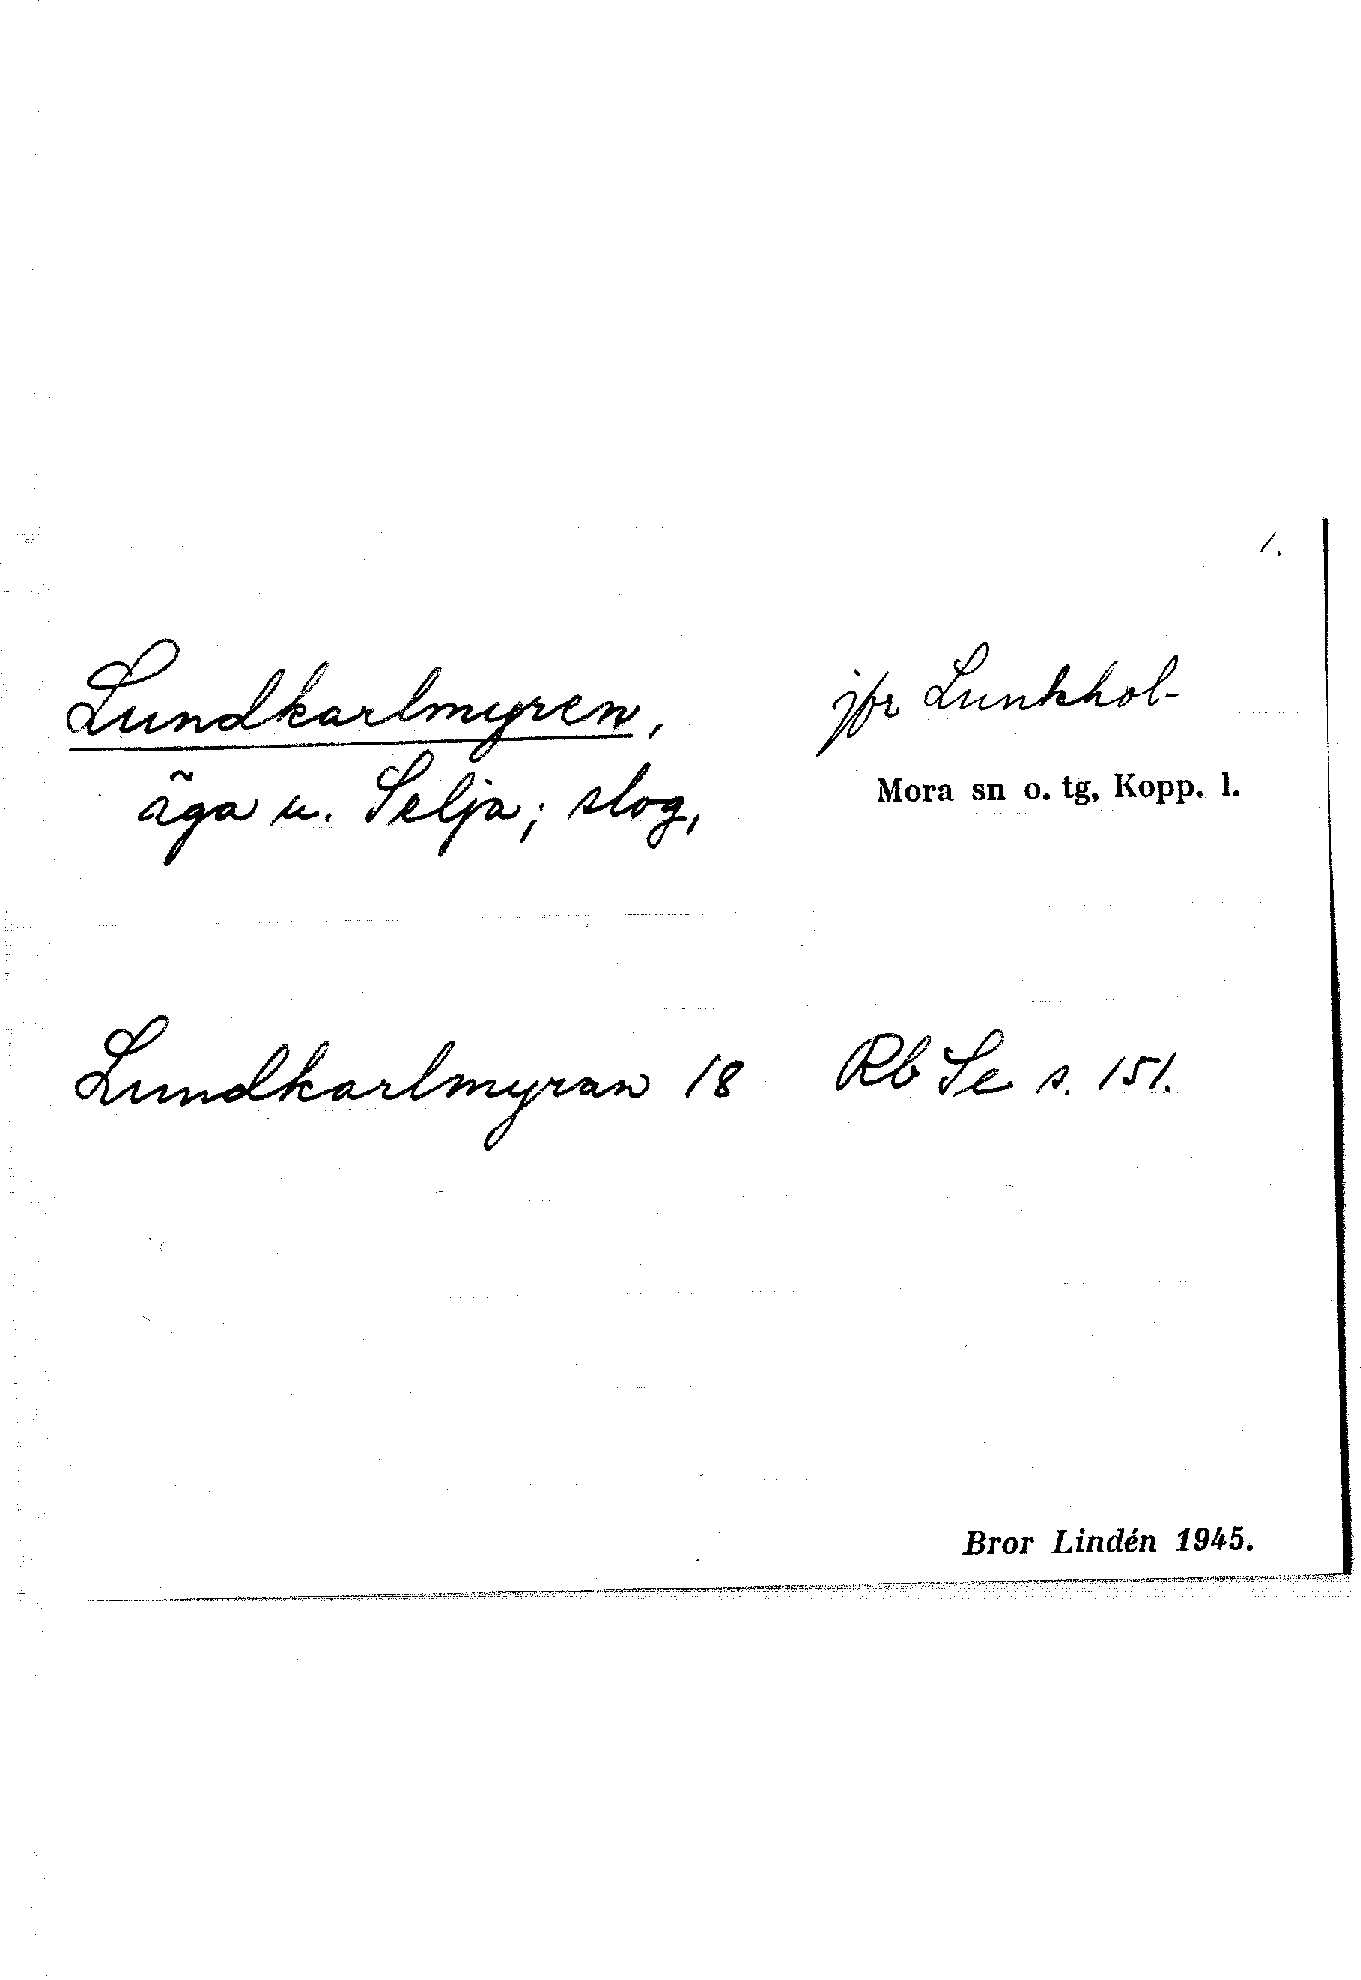 1.
Lundkarlmyren, jfr Lunkhol-
äga u. Selja; slog, Mora sn o. tg, Kopp. l.
Lundkarlmyran 18 Rb Se s. 151.
Bror Lindén 1945.